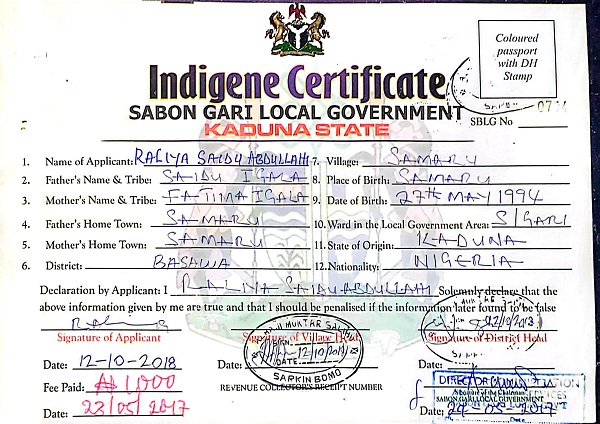 Coloured
passport
with DH
Stamp
Indigene Certificate
SABON GARI LOCAL GOVERNMENT
KADUNA STATE
SBLG No
1. Name of Applicant: RALIYA SAIDU ABDULLAHI 7. Village: SAMARU
2. Father's Name & Tribe: SAIDU IGALA 8. Place of Birth: SAMARU
3. Mother's Name & Tribe: FATIMA IGALA 9. Date of Birth: 27TH MAY 1994
4. Father's Home Town: SAMARU 10. Ward in the Local Government Area: S/GARI
5. Mother's Home Town: SAMARU 11. State of Origin: KADUNA
6. District: BASAWA 12. Nationality: NIGERIA
Declaration by Applicant: I RALIYA SAIDU ABDULLAHI Solemnly declare that the
above information given by me are true and that I should be penalised if the information later found to be false
Signature of Applicant Signature of Village Head Signature of District Head
MUKTAR
12/10/2018
DATE
SARKIN BOMO
12/10/2018
Date: 12-10-2018 Date:
Fee Paid: ₦1,000 REVENUE COLLECTOR'S RECEIPT NUMBER
Date: 23/05/2017 Date: 24-05-2017
DIRECTOR
SABON GARI LOCAL GOVERNMENT